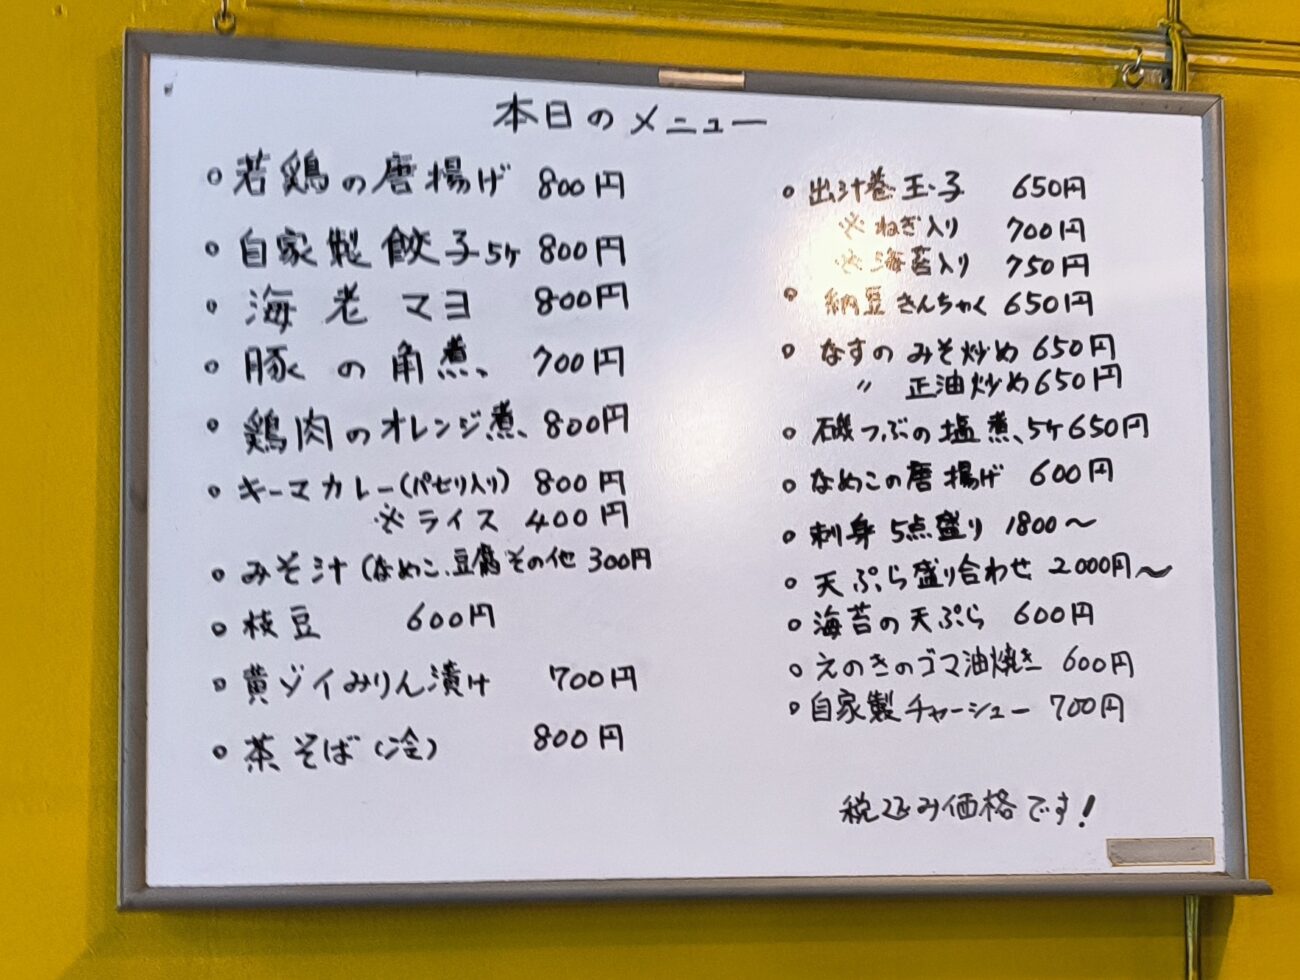 本日のメニュー
○ 若鶏の唐揚げ 800円
○ 自家製餃子5ヶ 800円
○ 海老マヨ 800円
○ 豚の角煮 700円
○ 鶏肉のオレンジ煮 800円
○ キーマカレー(パセリ入り) 800円
※ライス 400円
○ みそ汁(なめこ、豆腐その他 300円
○ 枝豆 600円
○ 黄ゾイみりん漬け 700円
○ 茶そば(冷) 800円
○ 出汁巻玉子 650円
※ねぎ入り 700円
※海苔入り 750円
○ 納豆きんちゃく 650円
○ なすのみそ炒め 650円
〃 正油炒め 650円
○ 磯つぶの塩煮、5ヶ 650円
○ なめこの唐揚げ 600円
○ 刺身5点盛り 1800〜
○ 天ぷら盛り合わせ 2000円〜
○ 海苔の天ぷら 600円
○ えのきのゴマ油焼き 600円
○ 自家製チャーシュー 700円
税込み価格です!